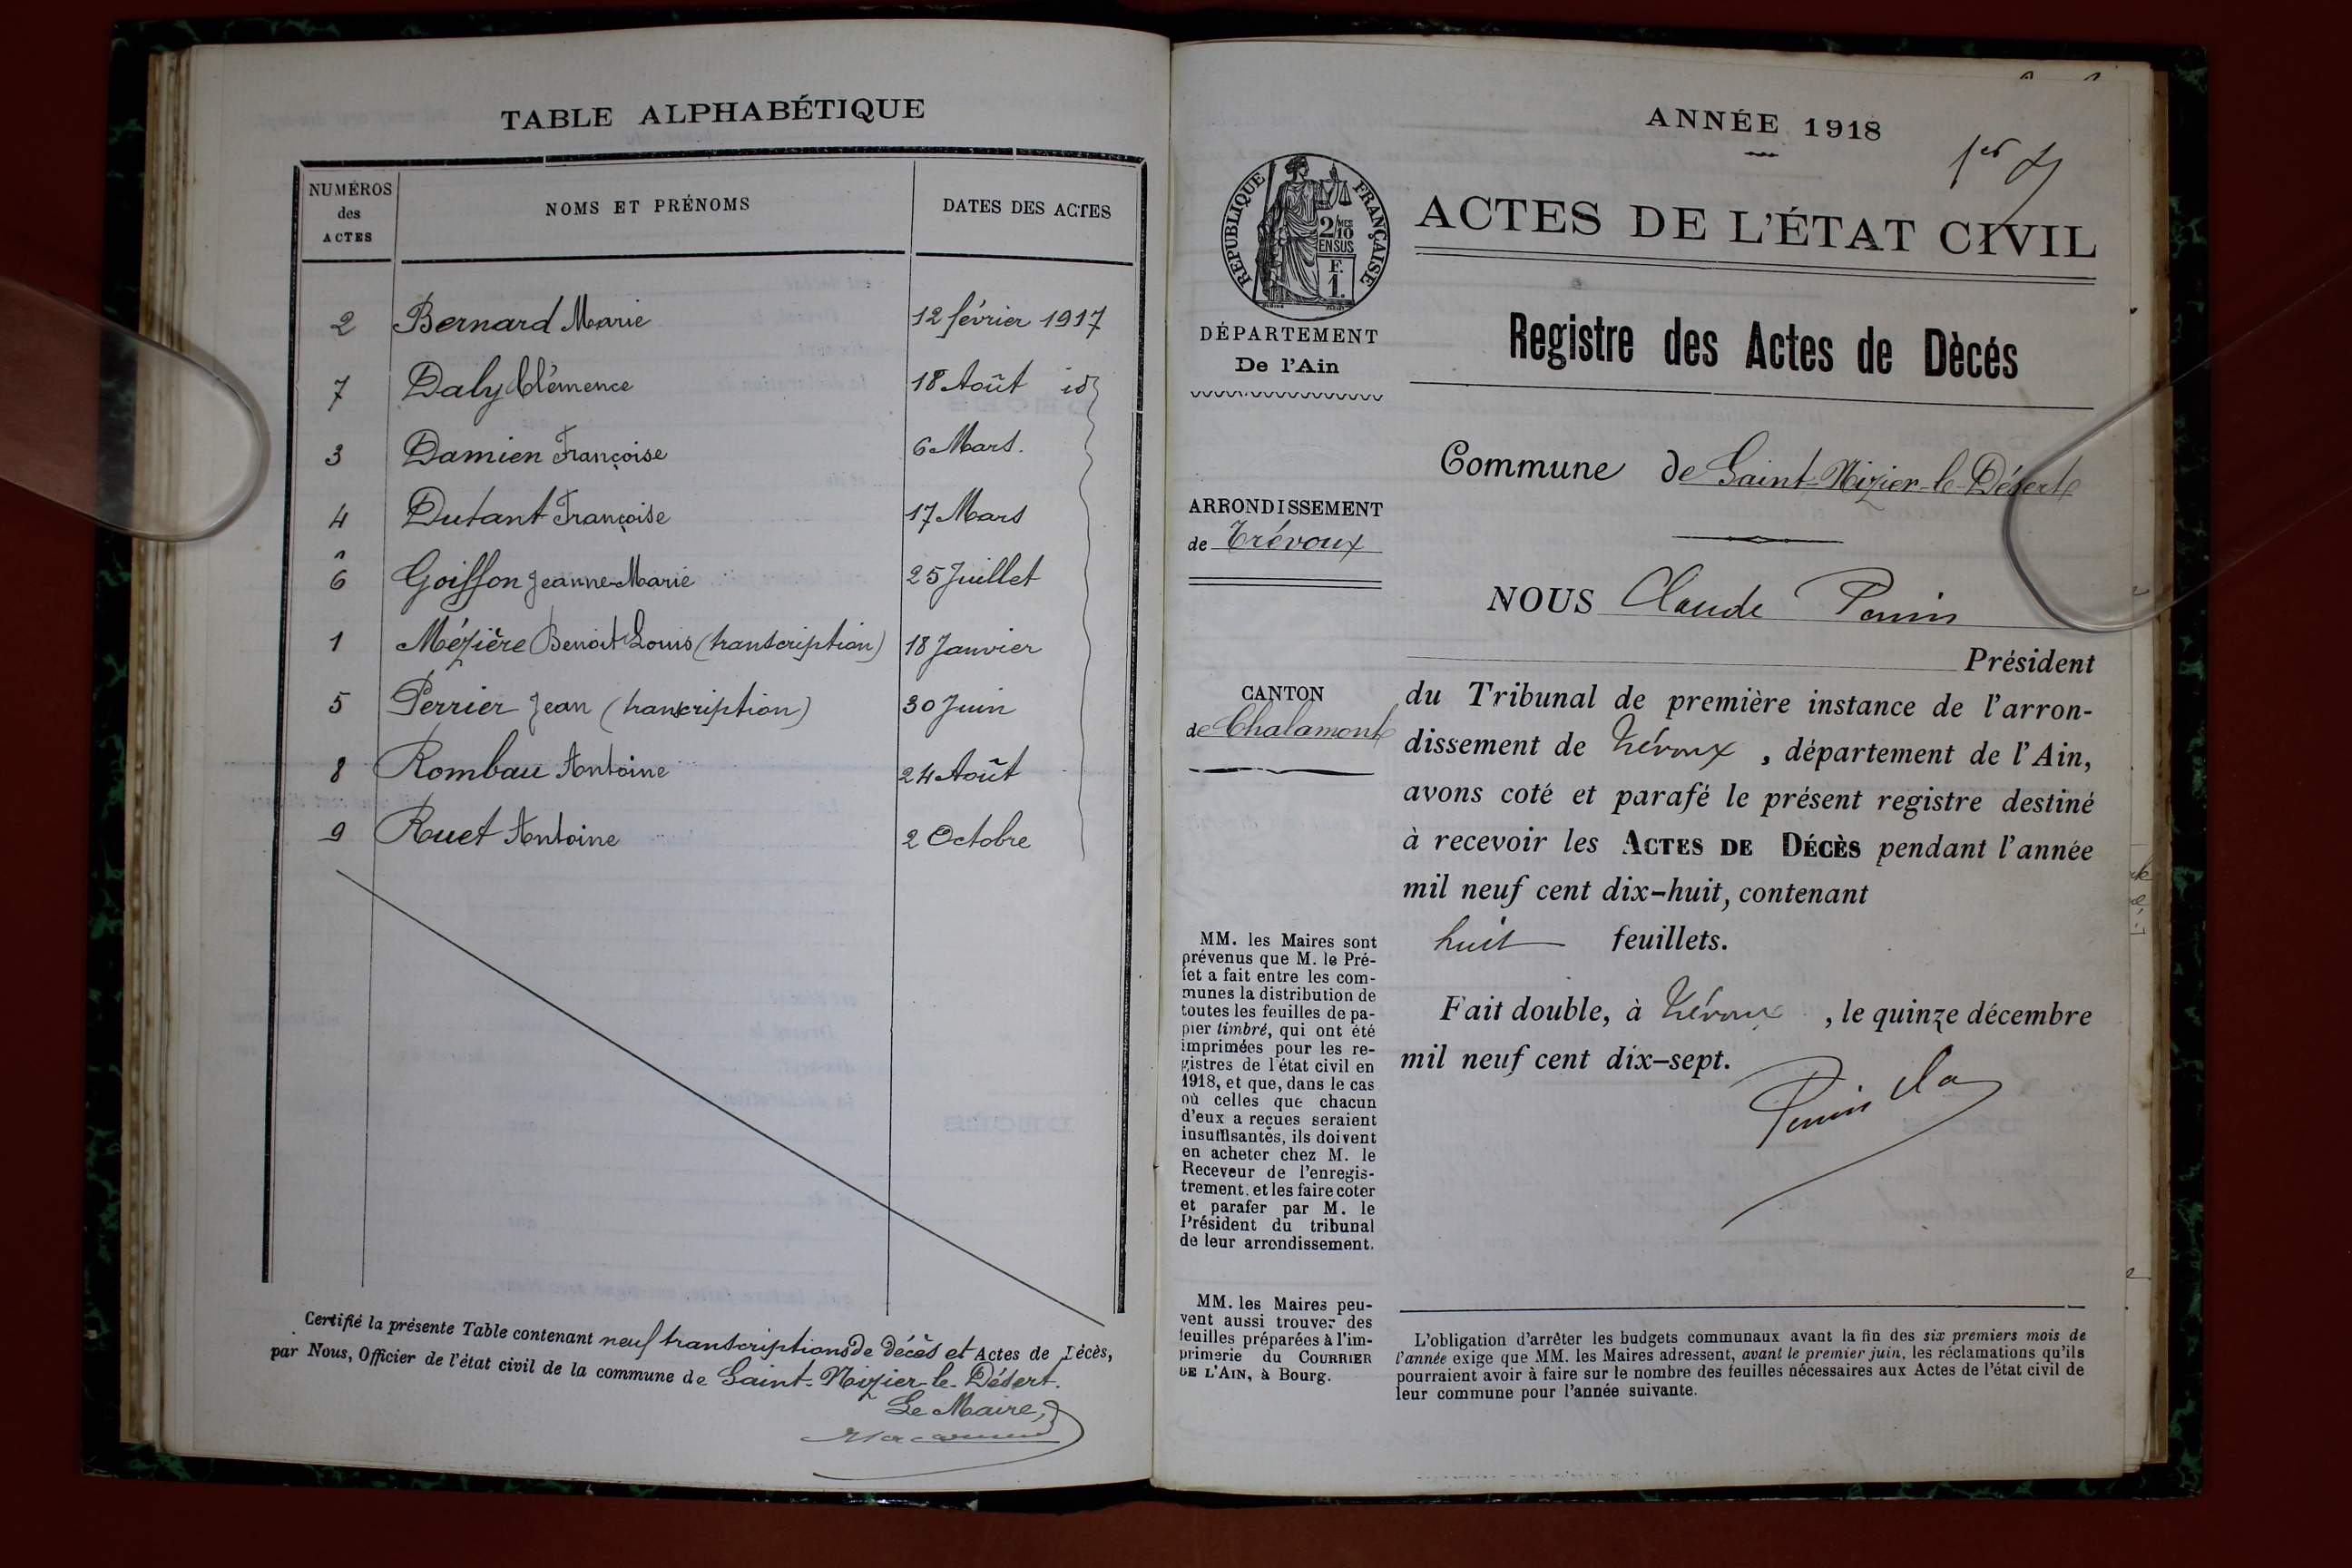 TABLE ALPHABÉTIQUE
NUMÉROS
des
ACTES
NOMS ET PRÉNOMS
DATES DES ACTES
2 Bernard Marie 12 février 1917
7 Daly Clémence 18 Août id
3 Damien Françoise 6 Mars.
4 Dutant Françoise 17 Mars
6 Goiffon Jeanne-Marie 25 Juillet
1 Mézière Benoit Louis (transcription) 18 Janvier
5 Perrier Jean (transcription) 30 Juin
8 Rombau Antoine 24 Août
9 Ruet Antoine 2 Octobre
Certifié la présente Table contenant neuf transcriptions de décès et Actes de Décès,
par Nous, Officier de l'état civil de la commune de Saint-Nizier-le-Désert.
Le Maire,
ANNÉE 1918
ACTES DE L'ÉTAT CIVIL
RÉPUBLIQUE FRANÇAISE
2/10MES
EN SUS
F.
1.
DÉPARTEMENT
De l'Ain
Registre des Actes de Dècés
Commune de Saint-Nizier-le-Désert
ARRONDISSEMENT
de Trévoux
NOUS Claude Penin
Président
CANTON
de Chalamont
du Tribunal de première instance de l'arron-
dissement de Trévoux, département de l'Ain,
avons coté et parafé le présent registre destiné
à recevoir les ACTES DE DÉCÈS pendant l'année
mil neuf cent dix-huit, contenant
huit feuillets.
Fait double, à Trévoux, le quinze décembre
mil neuf cent dix-sept.
Penin
MM. les Maires sont
prévenus que M. le Pré-
fet a fait entre les com-
munes la distribution de
toutes les feuilles de pa-
pier timbré, qui ont été
imprimées pour les re-
gistres de l'état civil en
1918, et que, dans le cas
où celles que chacun
d'eux a reçues seraient
insuffisantes, ils doivent
en acheter chez M. le
Receveur de l'enregis-
trement, et les faire coter
et parafer par M. le
Président du tribunal
de leur arrondissement.
MM. les Maires peu-
vent aussi trouver des
feuilles préparées à l'im-
primerie du COURRIER
DE L'AIN, à Bourg.
L'obligation d'arrêter les budgets communaux avant la fin des six premiers mois de
l'année exige que MM. les Maires adressent, avant le premier juin, les réclamations qu'ils
pourraient avoir à faire sur le nombre des feuilles nécessaires aux Actes de l'état civil de
leur commune pour l'année suivante.